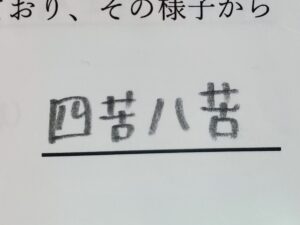 おり、その様子から
四苦八苦